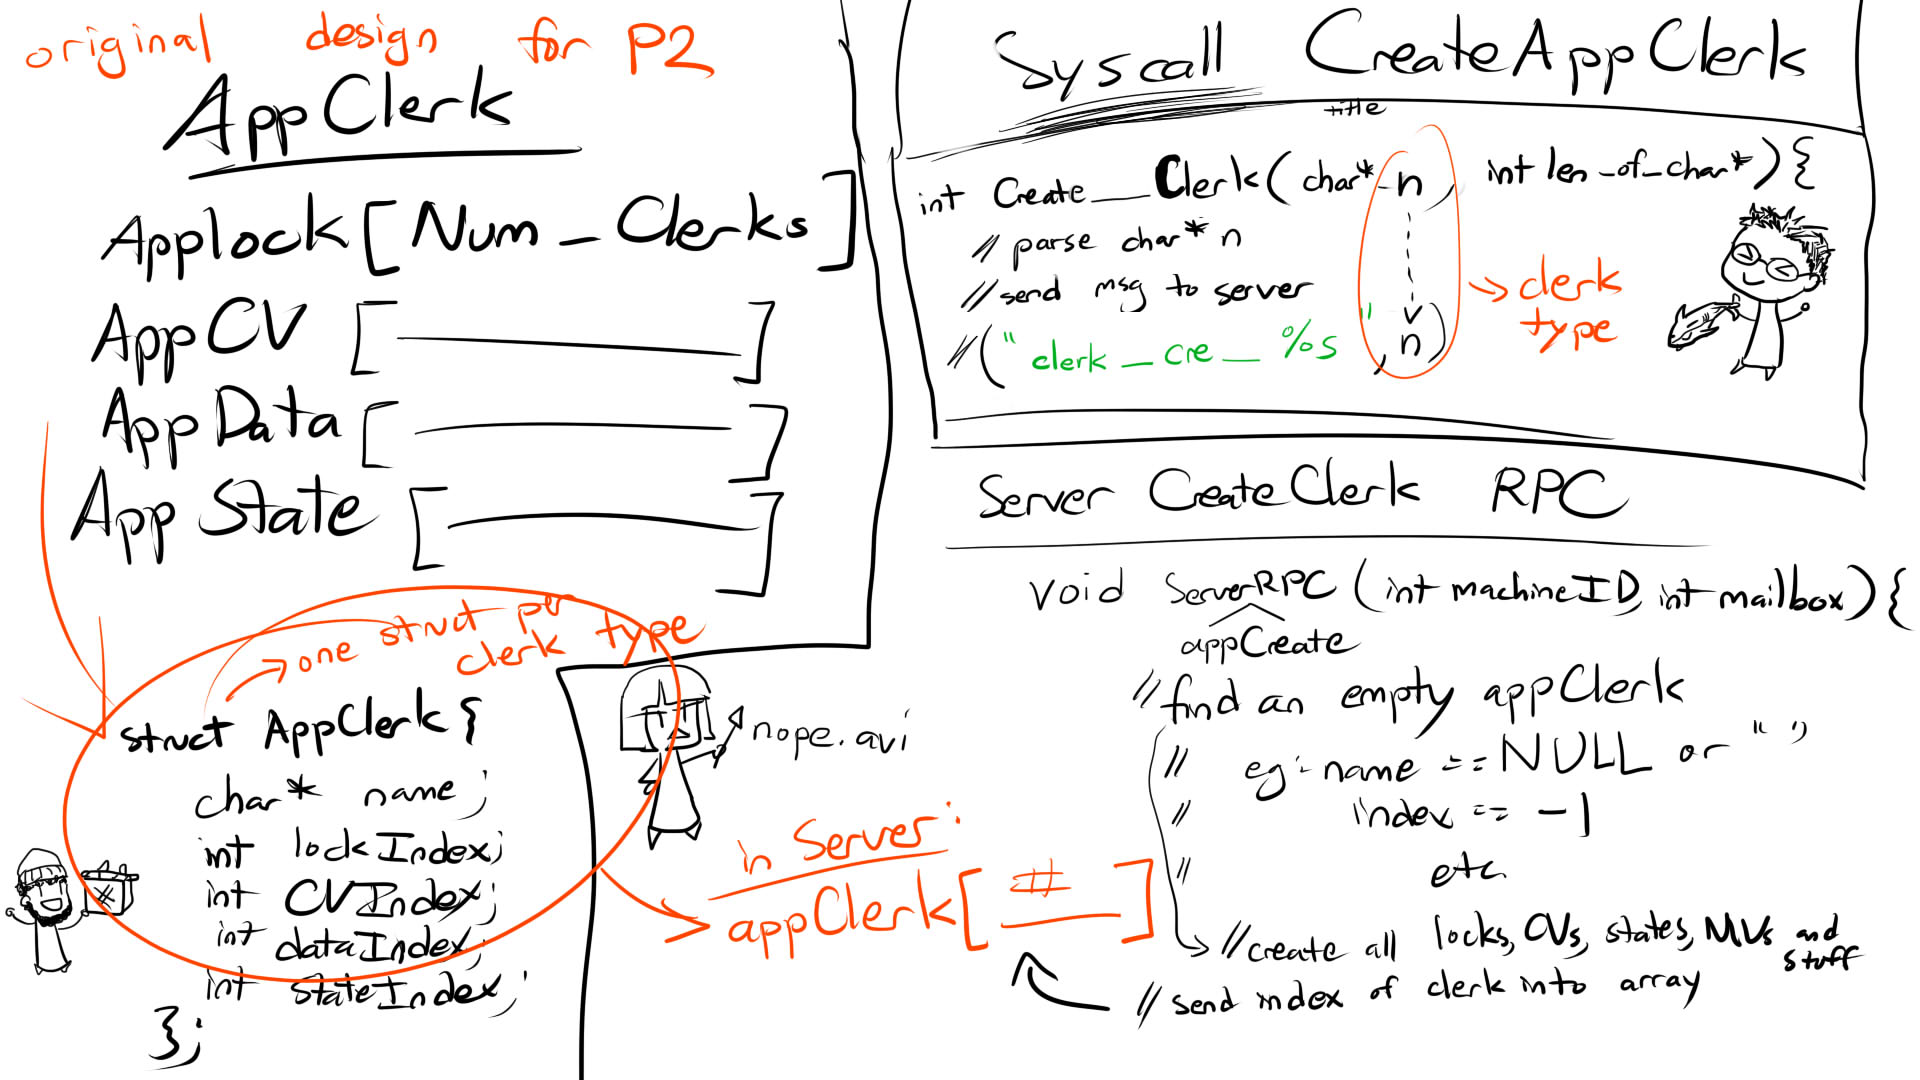 original design for P2
AppClerk
Applock [Num_Clerks]
AppCV [ ]
AppData [ ]
AppState [ ]
→ one struct per
clerk type
struct AppClerk {
char* name;
int lockIndex;
int CVIndex;
int dataIndex;
int stateIndex;
};
nope.avi
in Server:
appClerk [ # ]
Syscall CreateAppClerk
title
int Create__Clerk(char* n, int len_of_char*) {
// parse char* n
// send msg to server
// ("clerk_cre_%s", n)
→ clerk
type
Server CreateClerk RPC
void ServerRPC (int machineID, int mailbox) {
appCreate
// find an empty appClerk
// eg:- name == NULL or " "
// index == -1
// etc.
// create all locks, CVs, states, MVs and
stuff
// send index of clerk into array